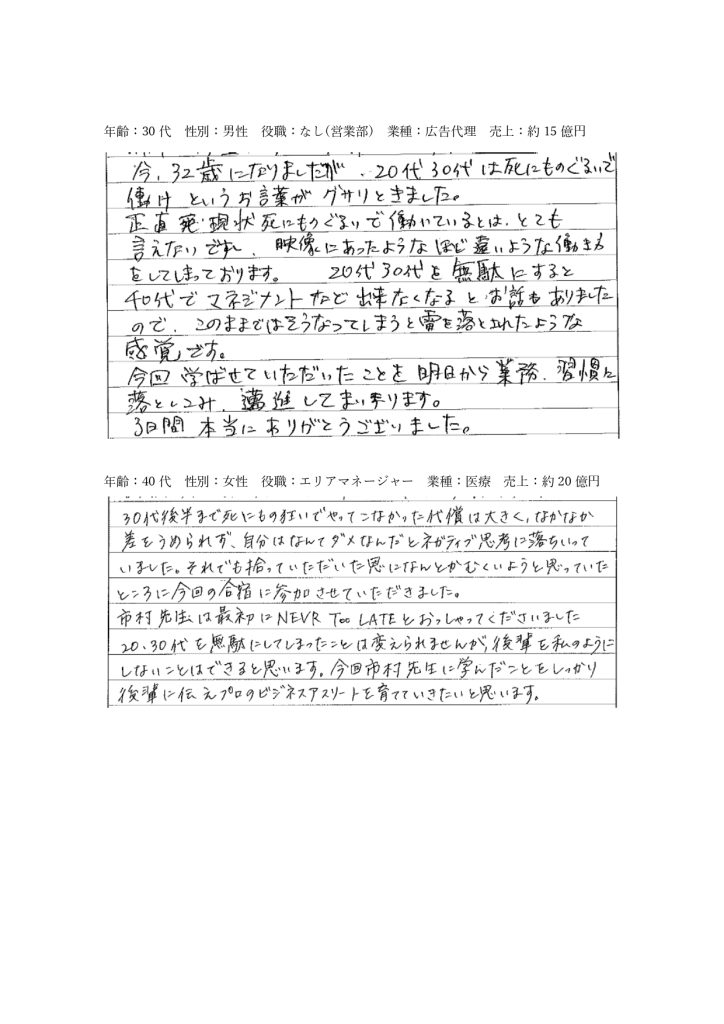 年齢：30代　性別：男性　役職：なし(営業部)　業種：広告代理　売上：約15億円
今、32歳になりましたが、20代30代は死にものぐるいで
働け というお言葉が グサリときました。
正直 現状死にものぐるいで働いているとは、とても
言えないですし、映像にあったような ほど遠いような働き方
をしてしまっております。　20代30代を無駄にすると
40代でマネジメントなど出来なくなるとお話もありました
ので、このままではそうなってしまうと雷を落とされたような
感覚です。
今回 学ばせていただいたことを明日から業務、習慣に
落としこみ、邁進してまいります。
3日間 本当にありがとうございました。
年齢：40代　性別：女性　役職：エリアマネージャー　業種：医療　売上：約20億円
30代後半まで死にもの狂いでやってこなかった代償は大きく、なかなか
差をうめられず、自分はなんてダメなんだとネガティブ思考に落ちいって
いました。それでも拾っていただいた恩になんとかむくいようと思っていた
ところに今回の合宿に参加させていただきました。
市村先生は最初にNEVR Too LATEとおっしゃってくださいました
20、30代を無駄にしてしまったことは変えられませんが、後輩を私のように
しないことはできると思います。今回市村先生に学んだことをしっかり
後輩に伝えプロのビジネスアスリートを育てていきたいと思います。